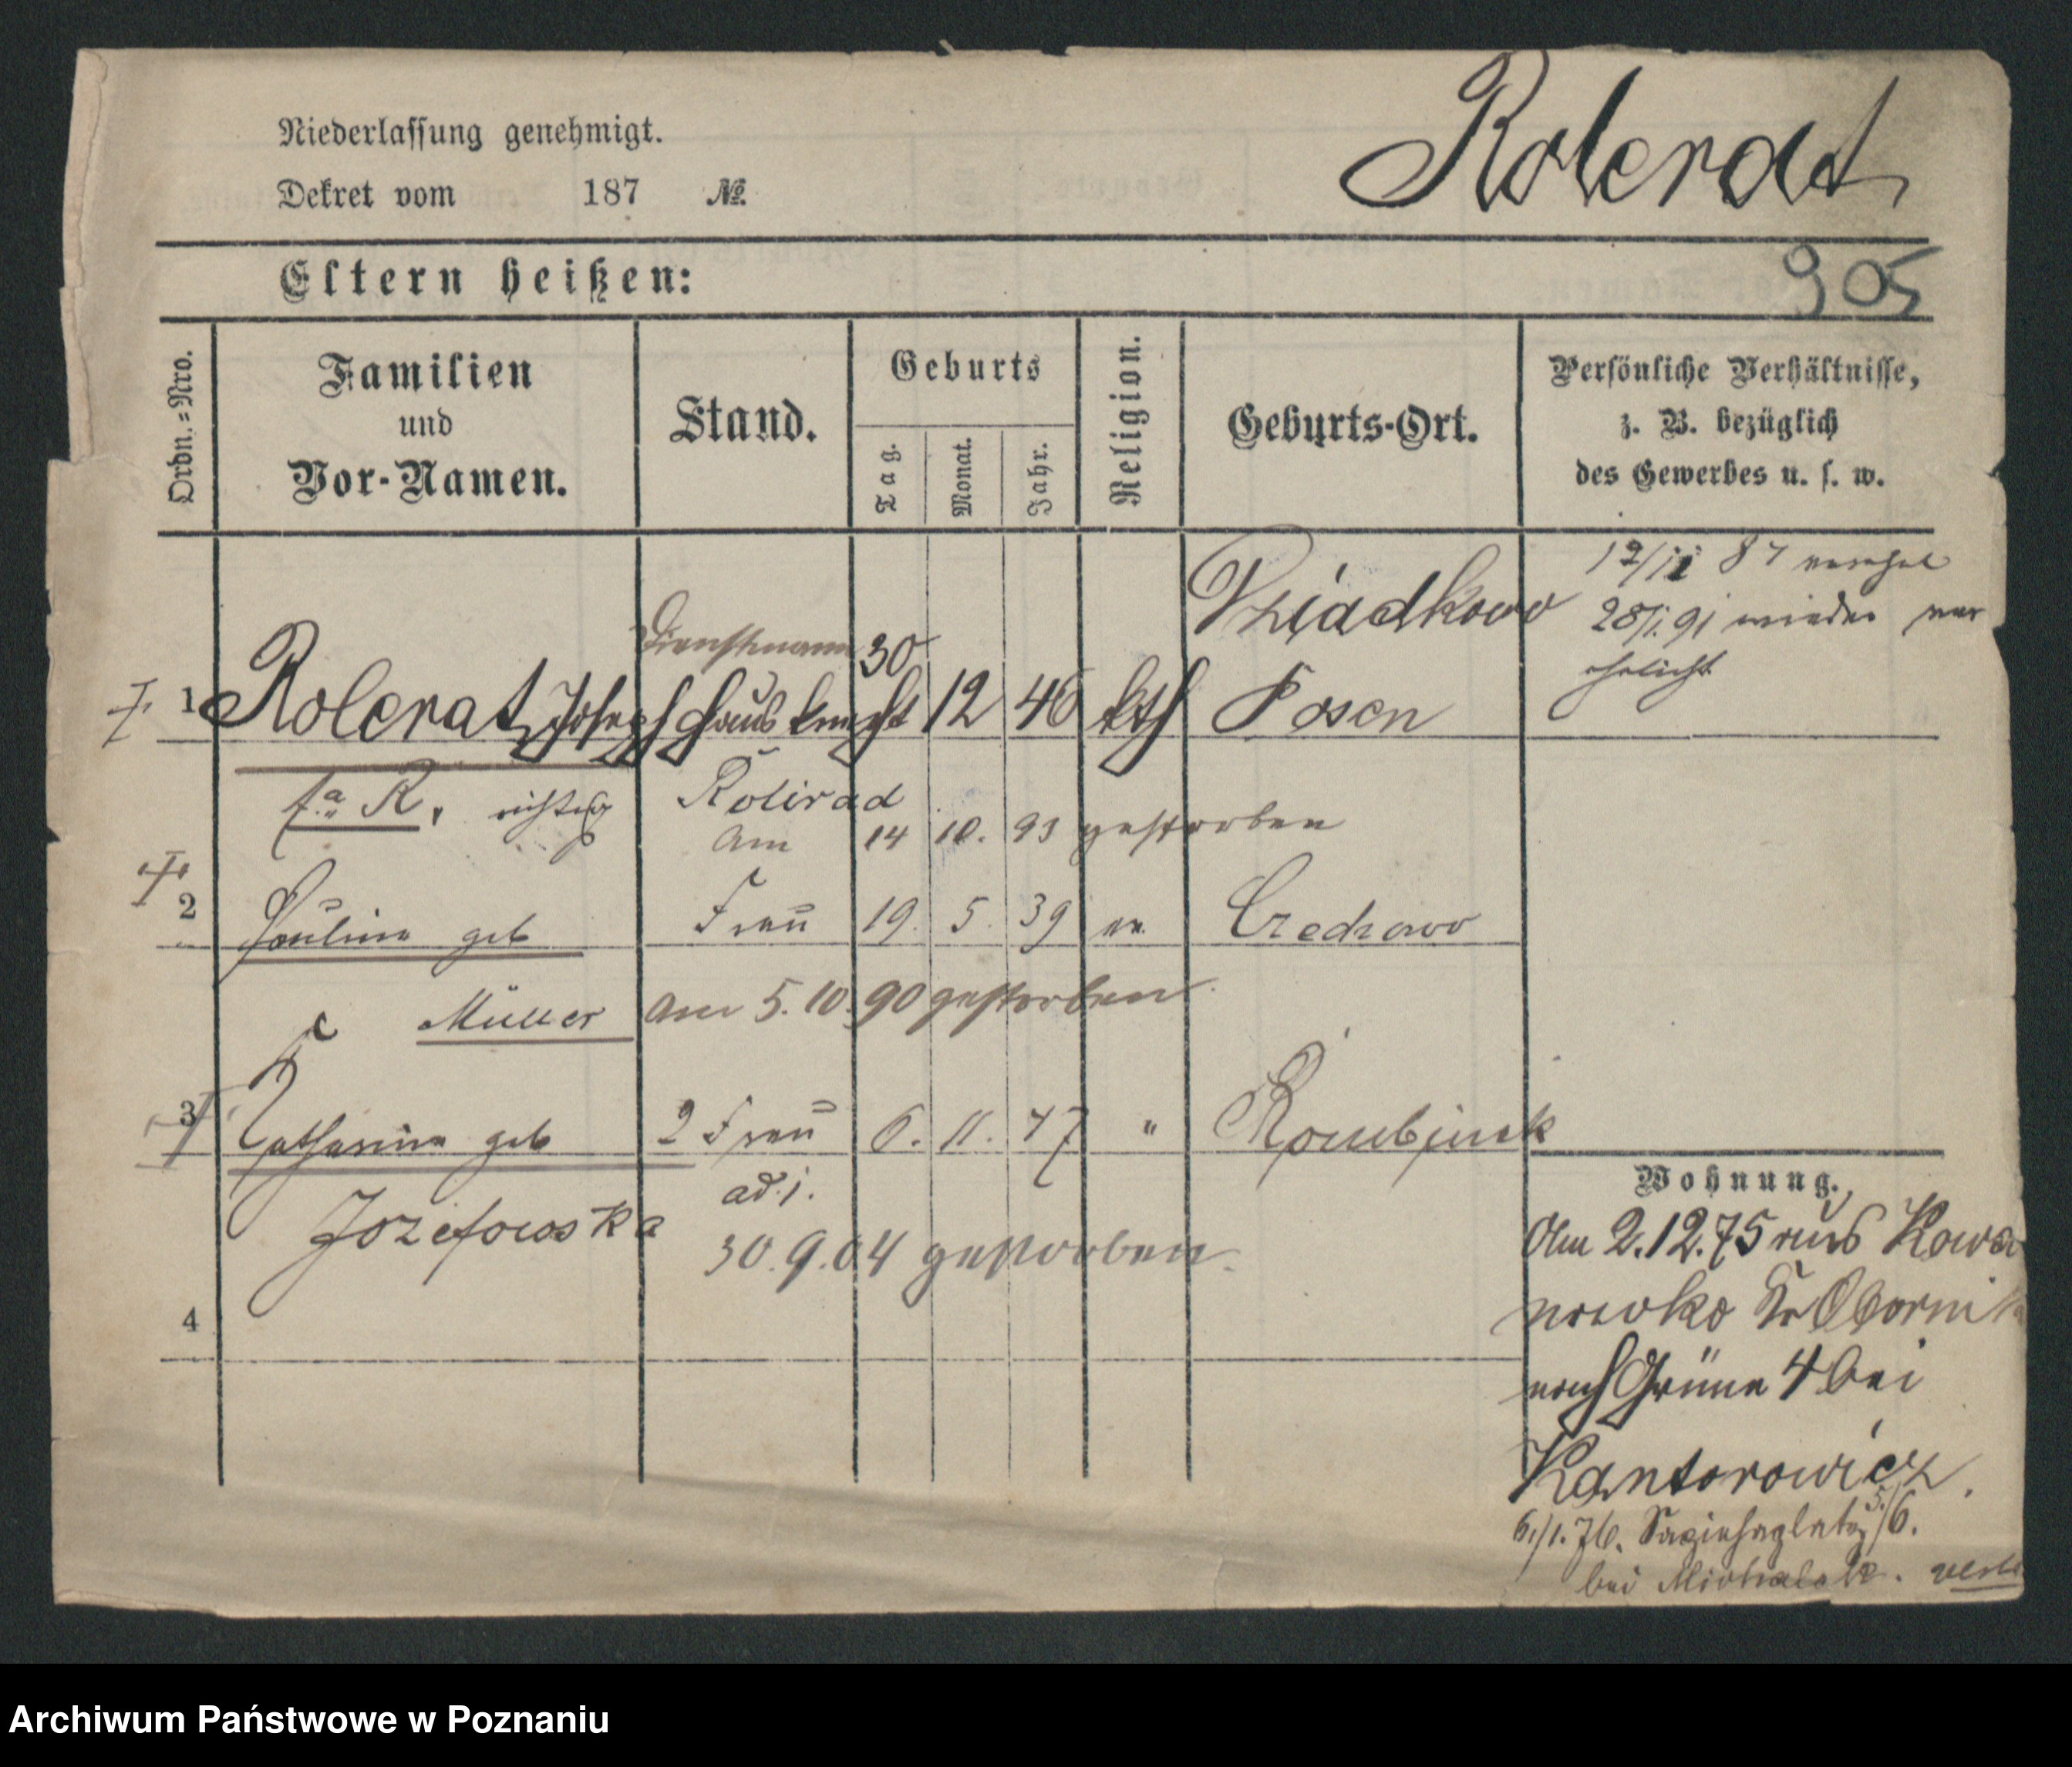 Niederlassung genehmigt.
Dekret vom 187 №
Rolerat
Eltern heißen:
905
Ordn.=Nro.
Familien
und
Vor-Namen.
Stand.
Geburts
Tag.
Monat.
Jahr.
Religion.
Geburts-Ort.
Persönliche Verhältnisse,
z. B. bezüglich
des Gewerbes u. s. w.
28/1. 91 wieder ver
ehelicht
Dienstmann 30
1 Rolerat, Joseph Hausknecht 12 46 kth Posen
R. richtig Rolirad
am 14 10. 93 gestorben
2 Paulina geb Frau 19. 5. 39 ev.
Müller am 5. 10. 90 gestorben
3 Catharina geb 2 Frau 6. 11. 47 "
ad. 1.
Jozefowska
30. 9. 04 gestorben
4
Wohnung.
Am 2.12.75 aus Kowa
nowko Kr Obornik
nach Grüne 4 bei
Kantorowicz.
6./1. 76. Sapiehaplatz 5/6.
bei Michalak.
Archiwum Państwowe w Poznaniu